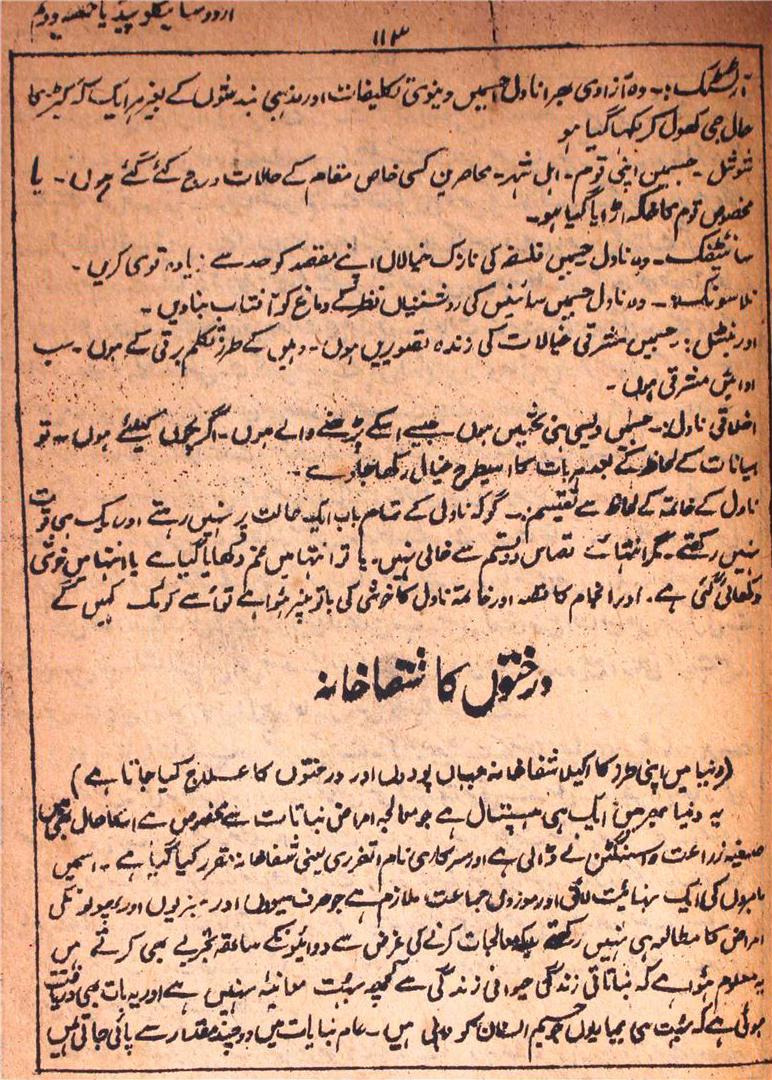 اردو سائیکلو پیڈیا حصہ دوم
۱۱۳
آرٹسٹک:۔ وہ آزادی بھرا ناول جسمیں دنیوی تکلیفات اور مذہبی بندشوں کے بغیر ہر ایک کیریکٹر کا
حال جی کھول کر لکھا گیا ہو
شوشل۔ جسمیں اپنی قوم۔ اہل شہر۔ معاصرین کسی خاص مقام کے حالات درج کئے گئے ہوں۔ یا
مخصوص قوم کا خاکہ اڑایا گیا ہو۔
سائنٹفک۔ وہ ناول جسمیں فلسفہ کی نازک خیالاں اپنے مقصد کو حد سے زیادہ قوی کریں۔
فلاسوفک:۔ وہ ناول جسمیں سائینس کی روشنیاں نظر کے دماغ کو آفتاب بنادیں۔
اورنیٹل:۔ جسمیں مشرقی خیالات کی زندہ تصوریں ہوں۔ وہیں کے طرز تکلم برقی کے ہوں۔ سب
ادائیں مشرقی ہوں۔
اخلاقی ناول:۔ جسمیں ویسی ہی بحثیں ہوں جیسے اسکے پڑھنے والے ہوں۔ اگر بچوں کیلئے ہوں۔ تو
کے لحاظ کے بعد ہر بات کا اسیطرح خیال رکھا جاوے۔
ناول کے خاتمہ کے لحاظ سے تقیسم:۔ گو کہ ناول کے تمام باب ایک حالت پر نہیں رہتے اور ایک ہی قوت
نہیں رکھتے۔ مگر انتہائے قصاص دو قسم سے خالی نہیں۔ یا تو انتہا میں غم دکھایا گیا ہے یا انتہا میں خوشی
دکھائی گئی ہے۔ اور انجام کا قصہ اور خاتمہ ناول کا خوشی کی باتونپر ہوا ہے تو اُسے کومک کہیں گے
درختوں کا شفاخانہ
(دنیا میں اپنی طرز کا اکیلا شفاخانہ جہاں پودوں اور درختوں کا عسلاج کیا جاتا ہے)
یہ دنیا بھر میں ایک ہی ہسپتال ہے جو معالجہ امراض نباتات سے مخصوص ہے اسکا حال بھی میں
صیغہ زراعت واشنگٹن نے ڈالی ہے اور سرکاری نام یعنی شفاخانہ مقرر کیا گیا ہے۔ اسمیں
ماہروں کی ایک نہایت لائق اور موزوں جماعت ملازم ہے جو صرف میووں اور سبزیوں اور پھولونکی
امراض کا مطالعہ ہی نہیں رکھتے بلکہ معالجات کرنے کی غرض سے دوائیونکے ساتھ تجربے بھی کرتے ہیں
یہ معلوم ہوا ہے کہ نباتاتی زندگی حیوانی زندگی سے کچھ بہت نہیں ہے اور یہ بات بھی دریافت
ہوئی ہے کہ بہت سی بیماریاں جو جسم انسان کو ہوتی ہیں۔ عام نباتات میں دوچند مقدار سے پائی جاتی ہیں